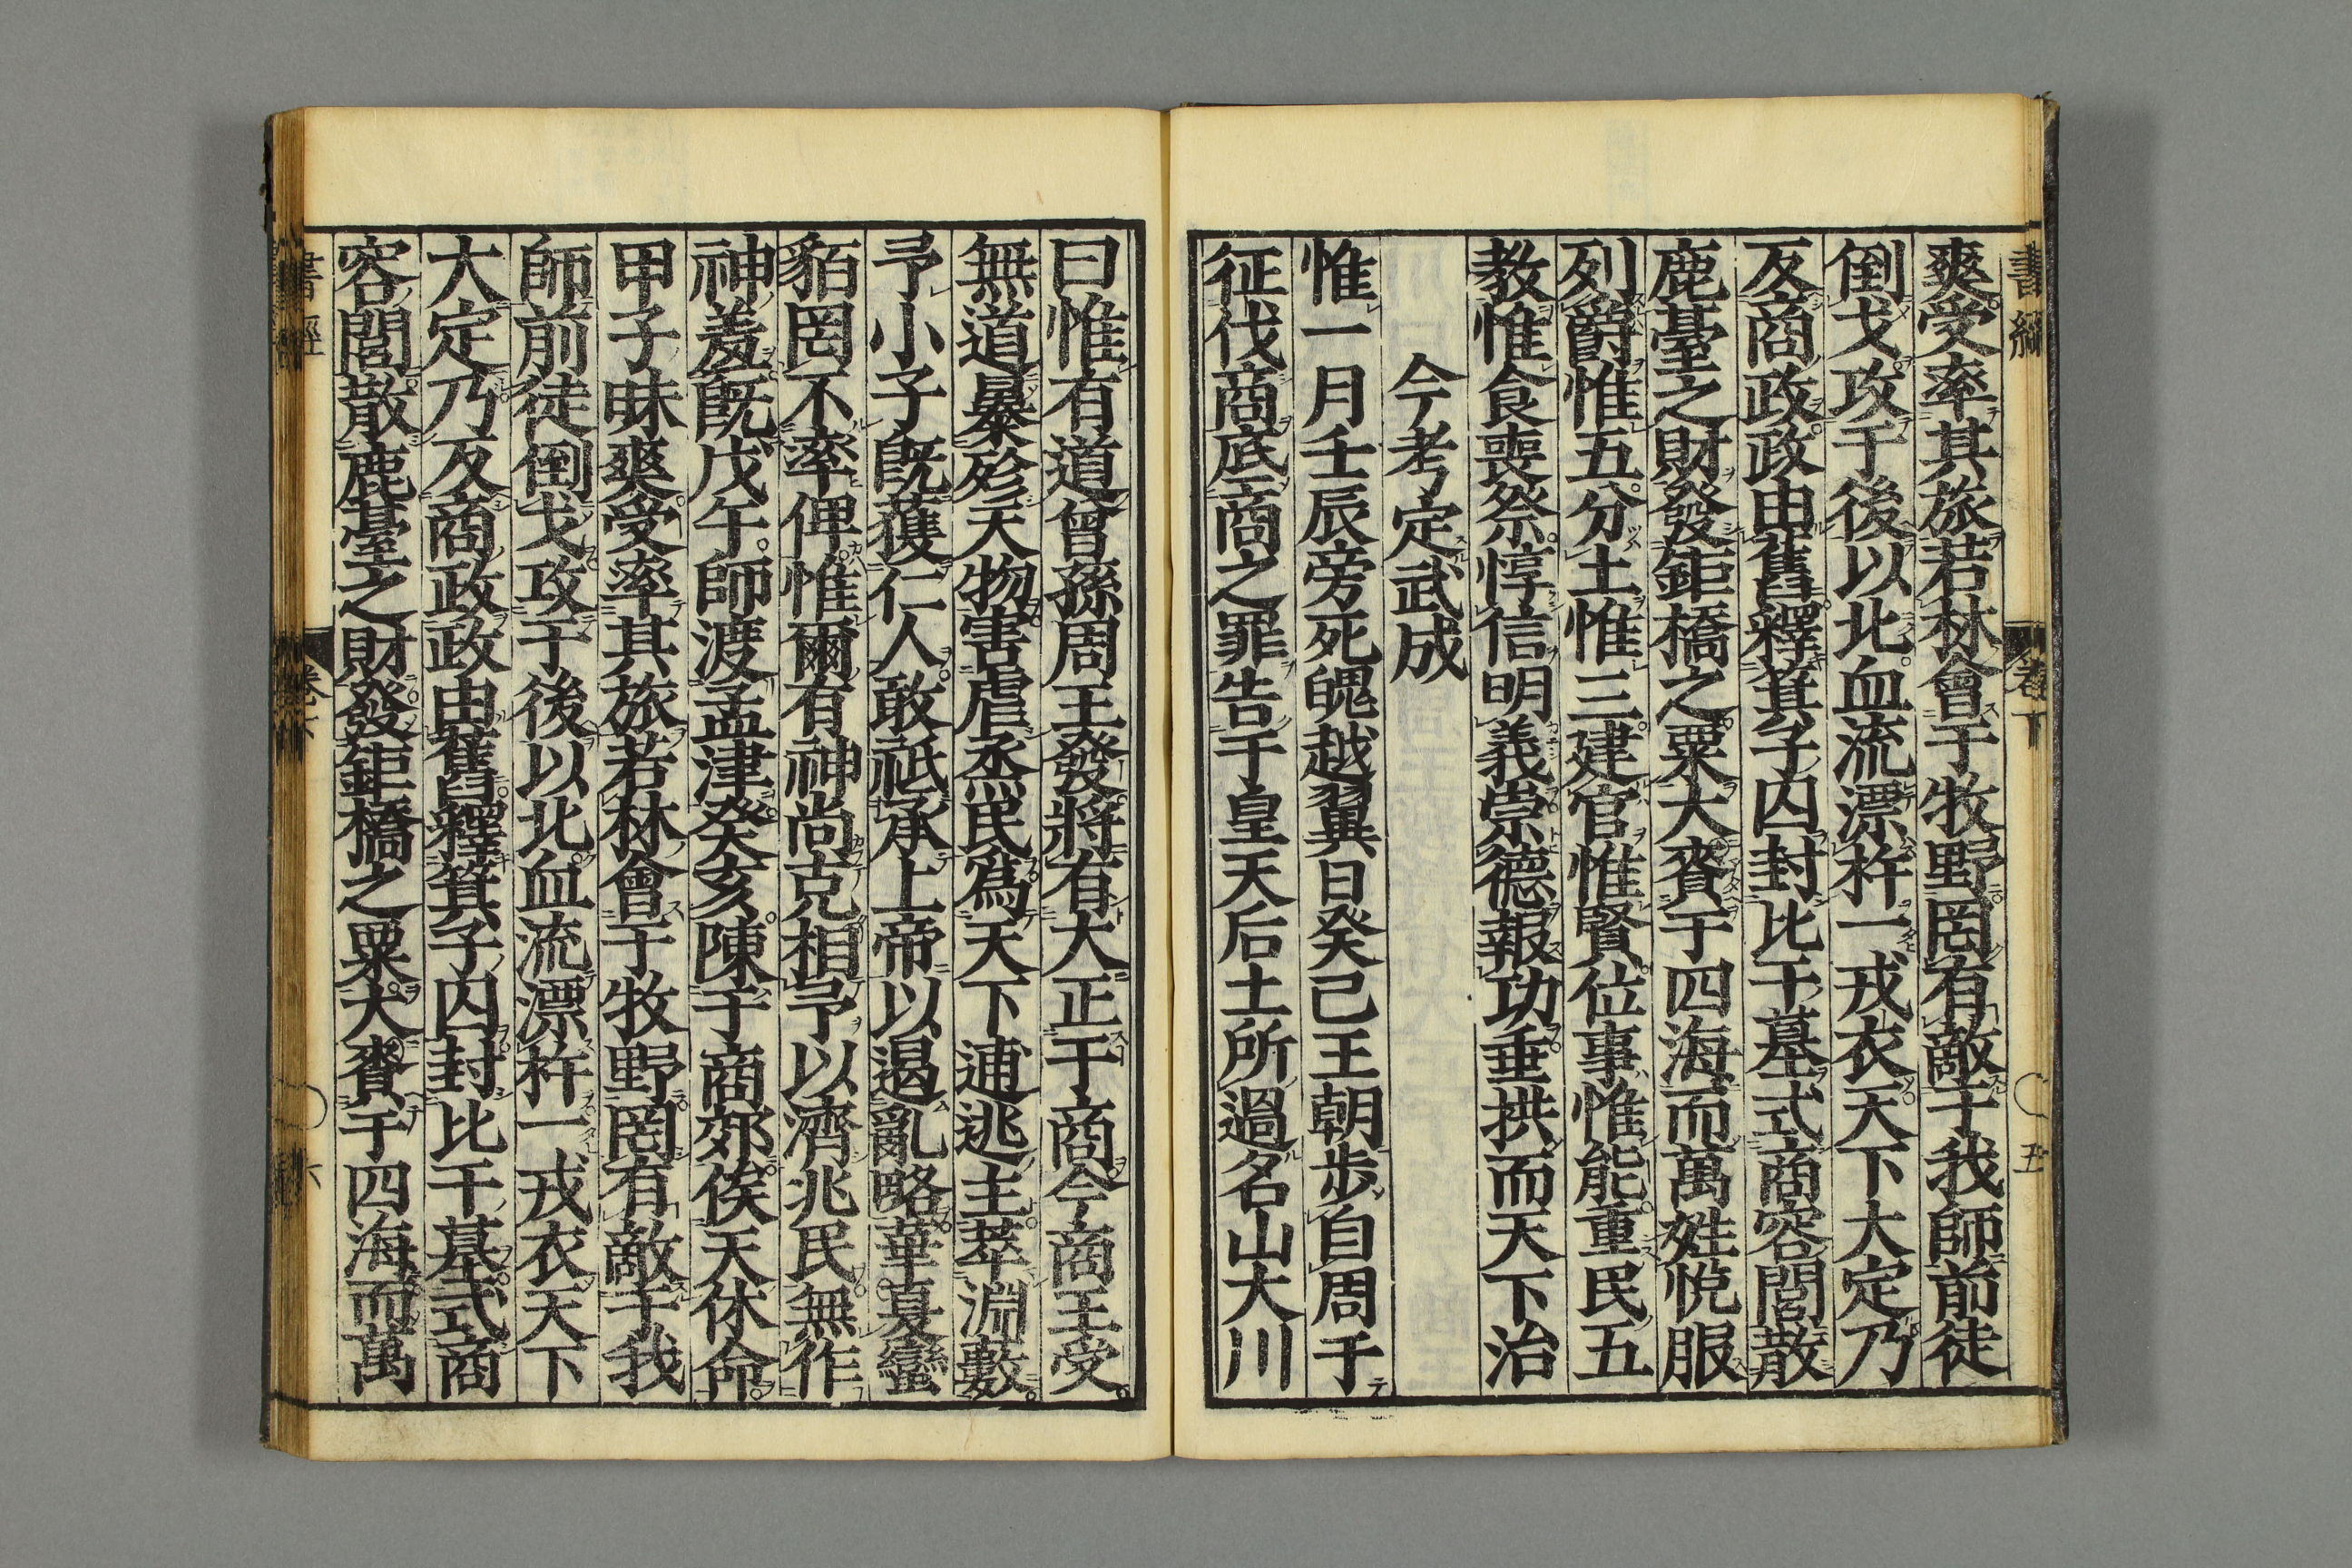 書經
卷下
五
爽受率其旅若林會于牧野罔有敵于我師前徒
倒戈攻于後以北血流漂杵一戎衣天下大定乃
反商政政由舊釋箕子囚封比干墓式商容閭散
鹿臺之財發鉅橋之粟大賚于四海而萬姓悅服
列爵惟五分土惟三建官惟賢位事惟能重民五
教惟食喪祭惇信明義崇德報功垂拱而天下治
今考定武成
惟一月壬辰旁死魄越翼日癸巳王朝步自周于
征伐商底商之罪告于皇天后土所過名山大川
曰惟有道曾孫周王發將有大正于商今商王受
無道暴殄天物害虐烝民爲天下逋逃主萃淵藪
予小子旣獲仁人敢祗承上帝以遏亂略華夏蠻
貊罔不率俾惟爾有神尚克相予以濟兆民無作
神羞旣戊午師渡孟津癸亥陳于商郊俟天休命
甲子昧爽受率其旅若林會于牧野罔有敵于我
師前徒倒戈攻于後以北血流漂杵一戎衣天下
大定乃反商政政由舊釋箕子囚封比干墓式商
容閭散鹿臺之財發鉅橋之粟大賚于四海而萬
書經
六